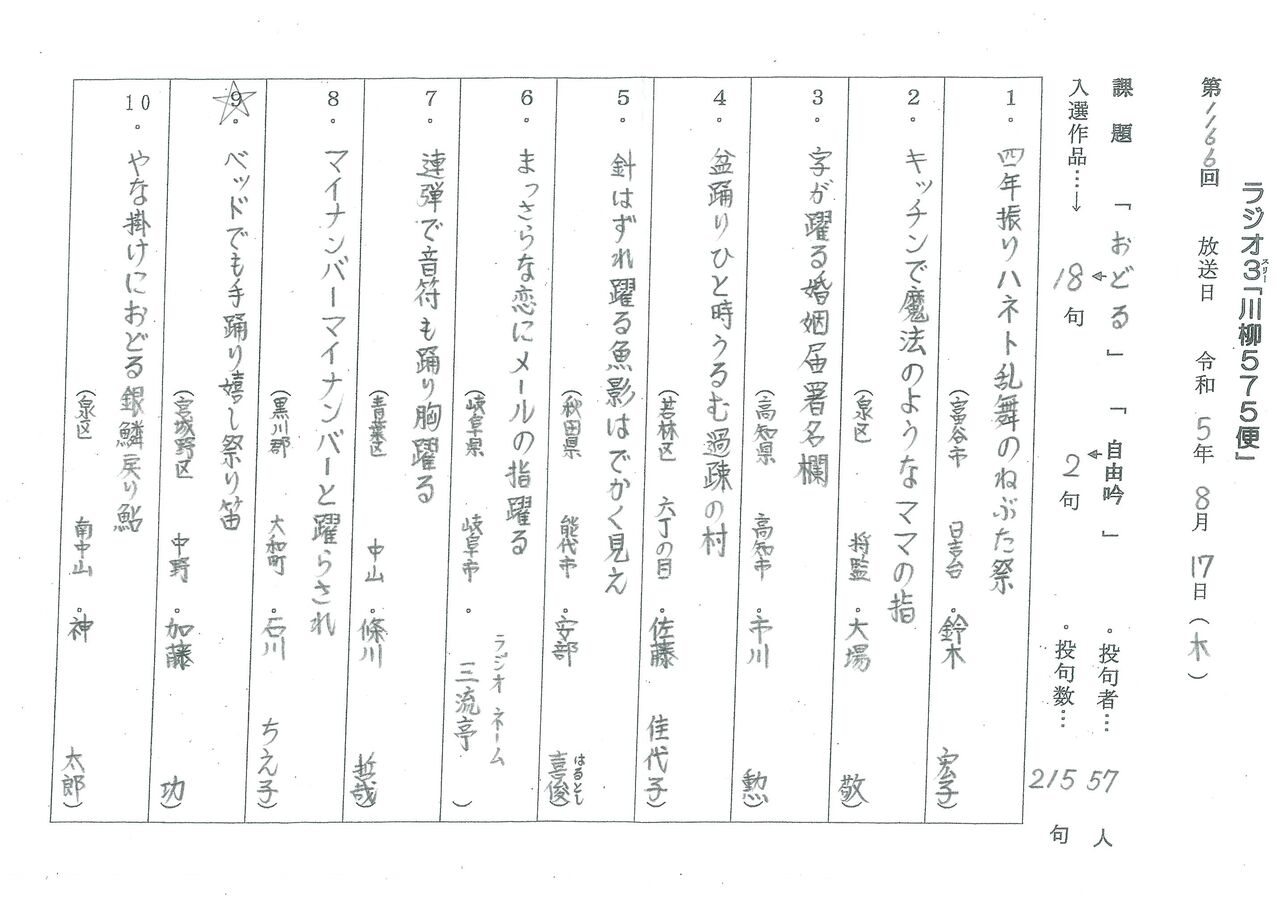 ラジオ3「川柳575便」
スリー
第1166回 放送日 令和5年8月17日(木)
課題 「おどる」 「自由吟」 ・投句者…57人
入選作品…→ 18句 2句 ・投句数…215句
1。 四年振りハネト乱舞のねぶた祭
(富谷市 日吉台・鈴木 宏子)
2。 キッチンで魔法のようなママの指
(泉区 将監・大場 敬)
3。 字が躍る婚姻届署名欄
(高知県 高知市・市川 勲)
4。 盆踊りひと時うるむ過疎の村
(若林区 六丁の目・佐藤 佳代子)
5。 針はずれ躍る魚影はでかく見え
(秋田県 能代市・安部 喜俊)
はるとし
6。 まっさらな恋にメールの指躍る
ラジオネーム
(岐阜県 岐阜市・三流亭)
7。 連弾で音符も踊り胸躍る
(青葉区 中山・條川 哲哉)
8。 マイナンバーマイナンバーと躍らされ
(黒川郡 大和町・石川 ちえ子)
9。 ベッドでも手踊り嬉し祭り笛
(宮城野区 中野・加藤 功)
10。 やな掛けにおどる銀鱗戻り鮎
(泉区 南中山・神 太郎)